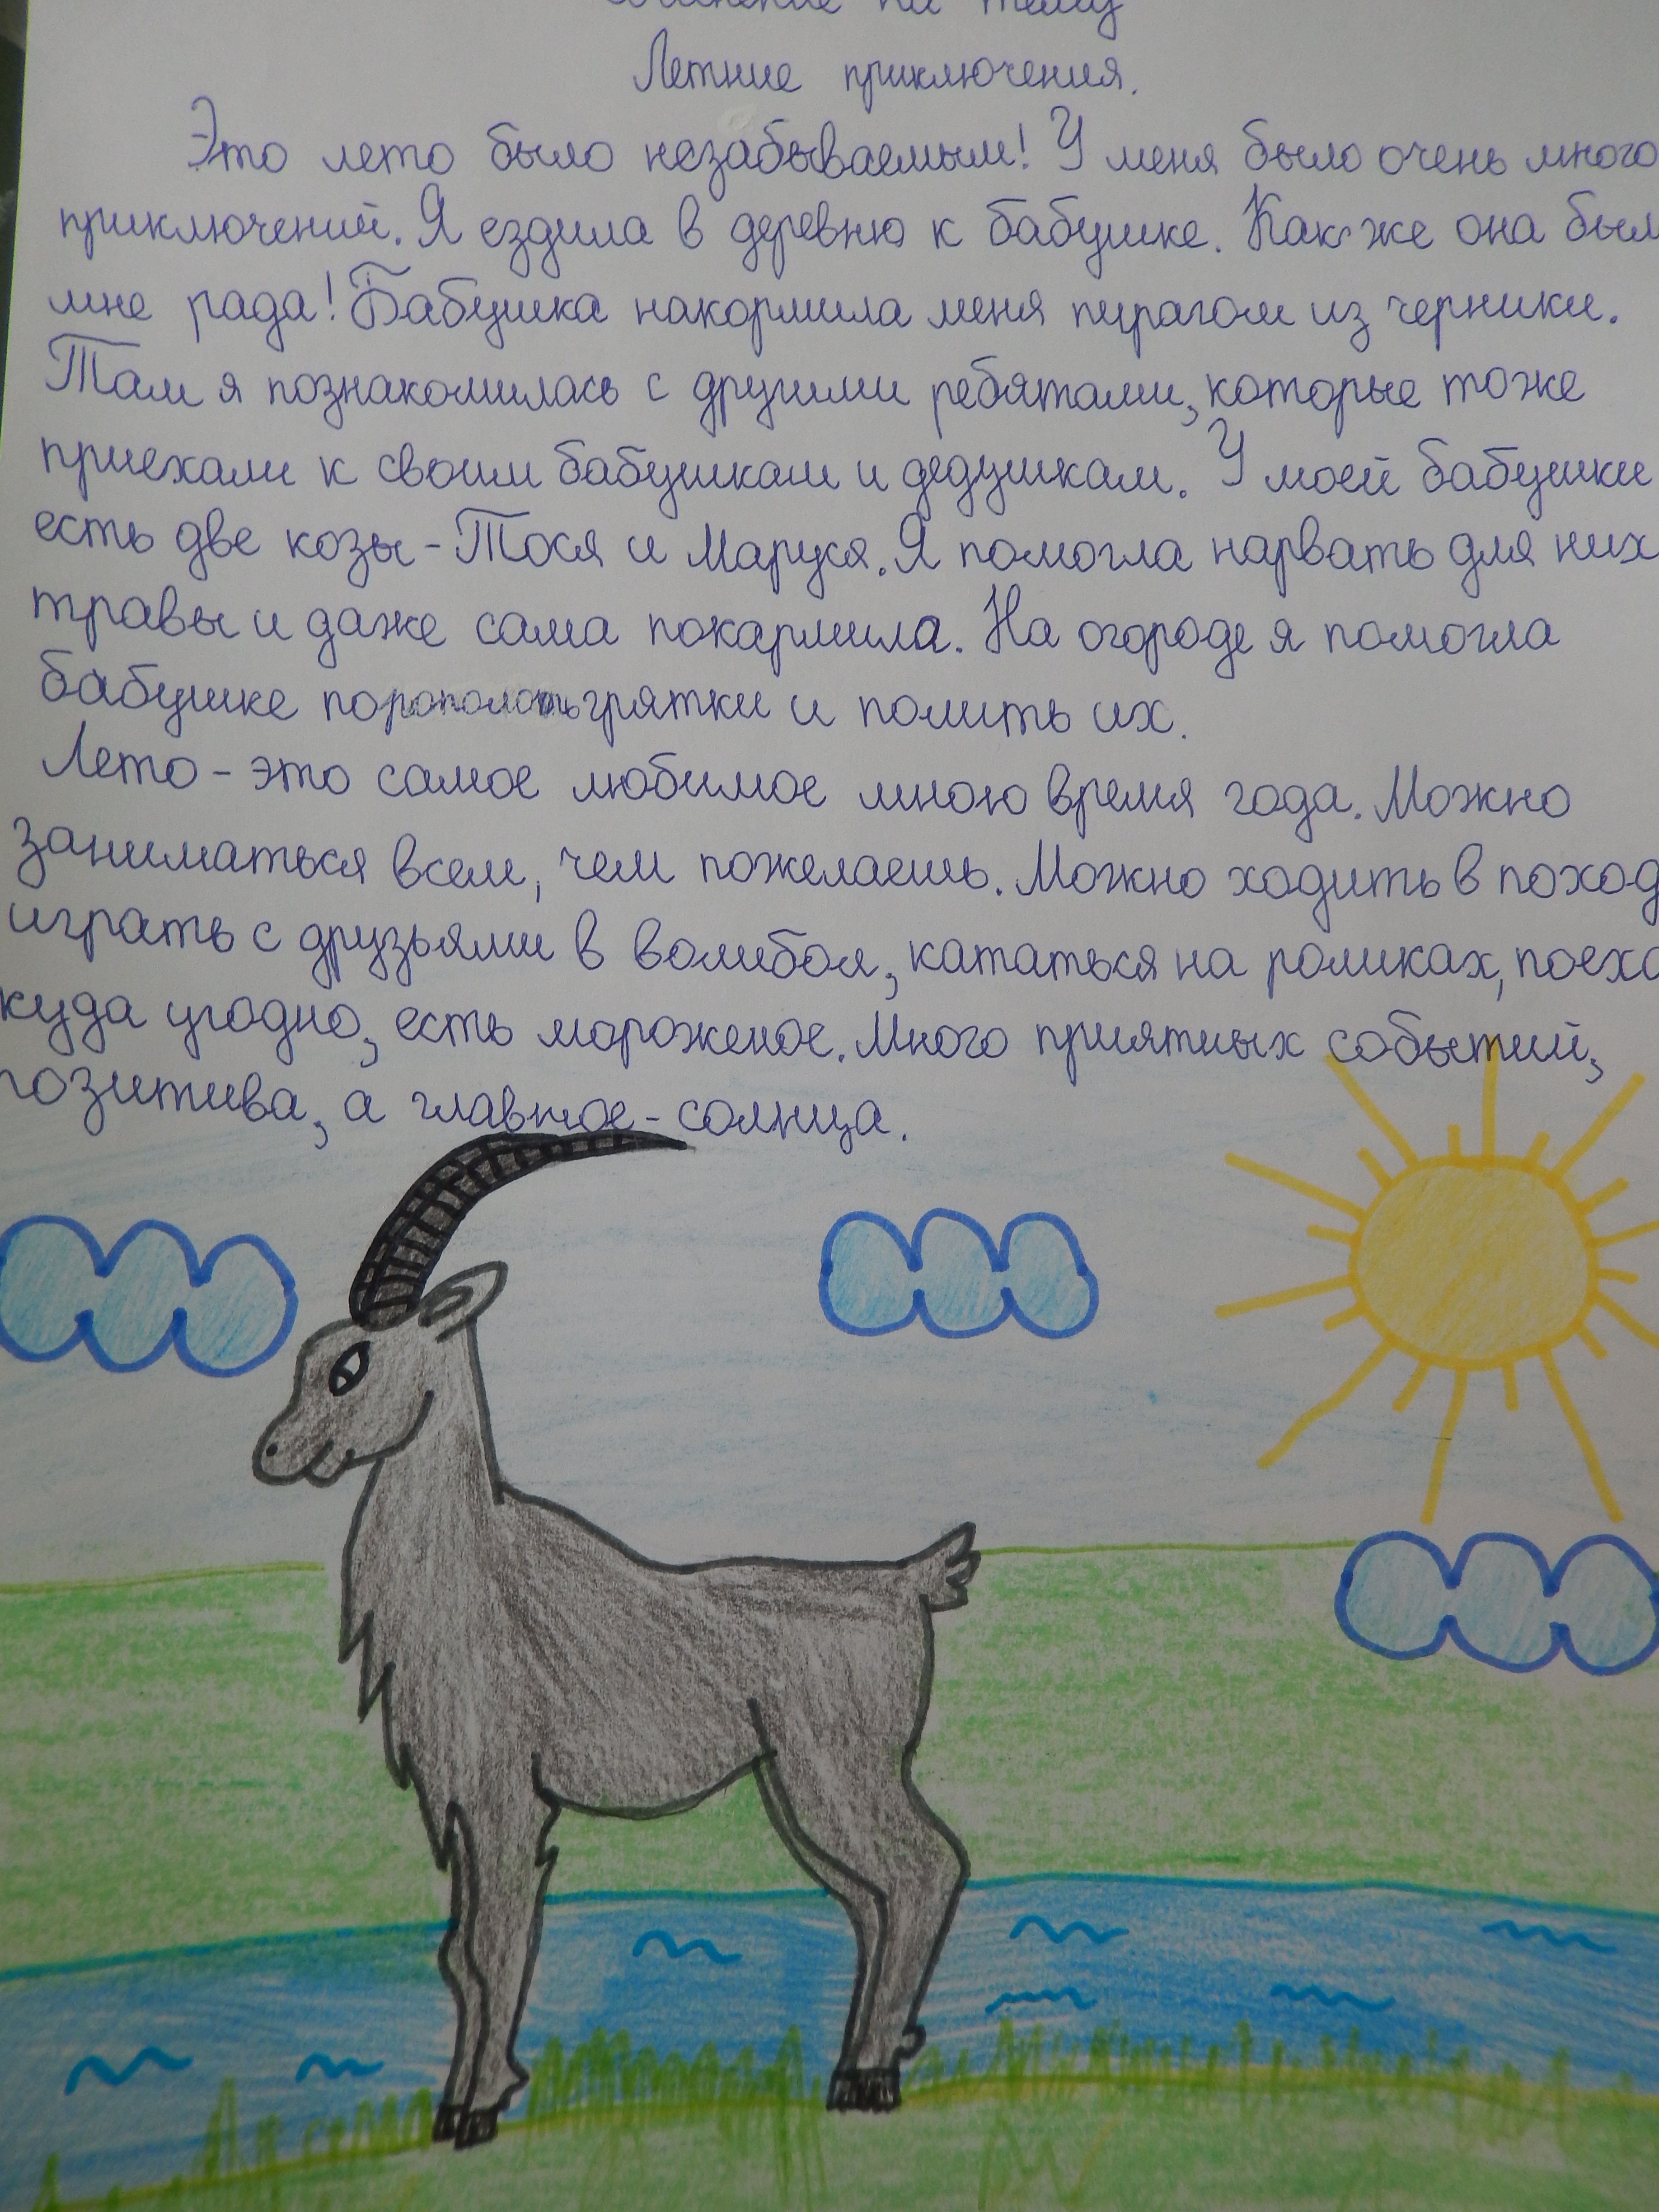 Сочинение на тему
Летние приключения.
Это лето было незабываемым! У меня было очень много
приключений. Я ездила в деревню к бабушке. Как же она был
мне рада! Бабушка накормила меня пирагом из черники.
Там я познакомилась с другими ребятами, которые тоже
приехали к своим бабушкам и дедушкам. У моей бабушки
есть две козы - Тося и Маруся. Я помогла нарвать для них
травы и даже сама покармила. На огороде я помогла
бабушке грятки и полить их.
Лето - это самое любимое мною время года. Можно
заниматься всем, чем пожелаешь. Можно ходить в поход
играть с друзьями в волибол, кататься на роликах, поеха
куда угодно, есть мороженое. Много приятных событий,
позитива, а главное - солнца.